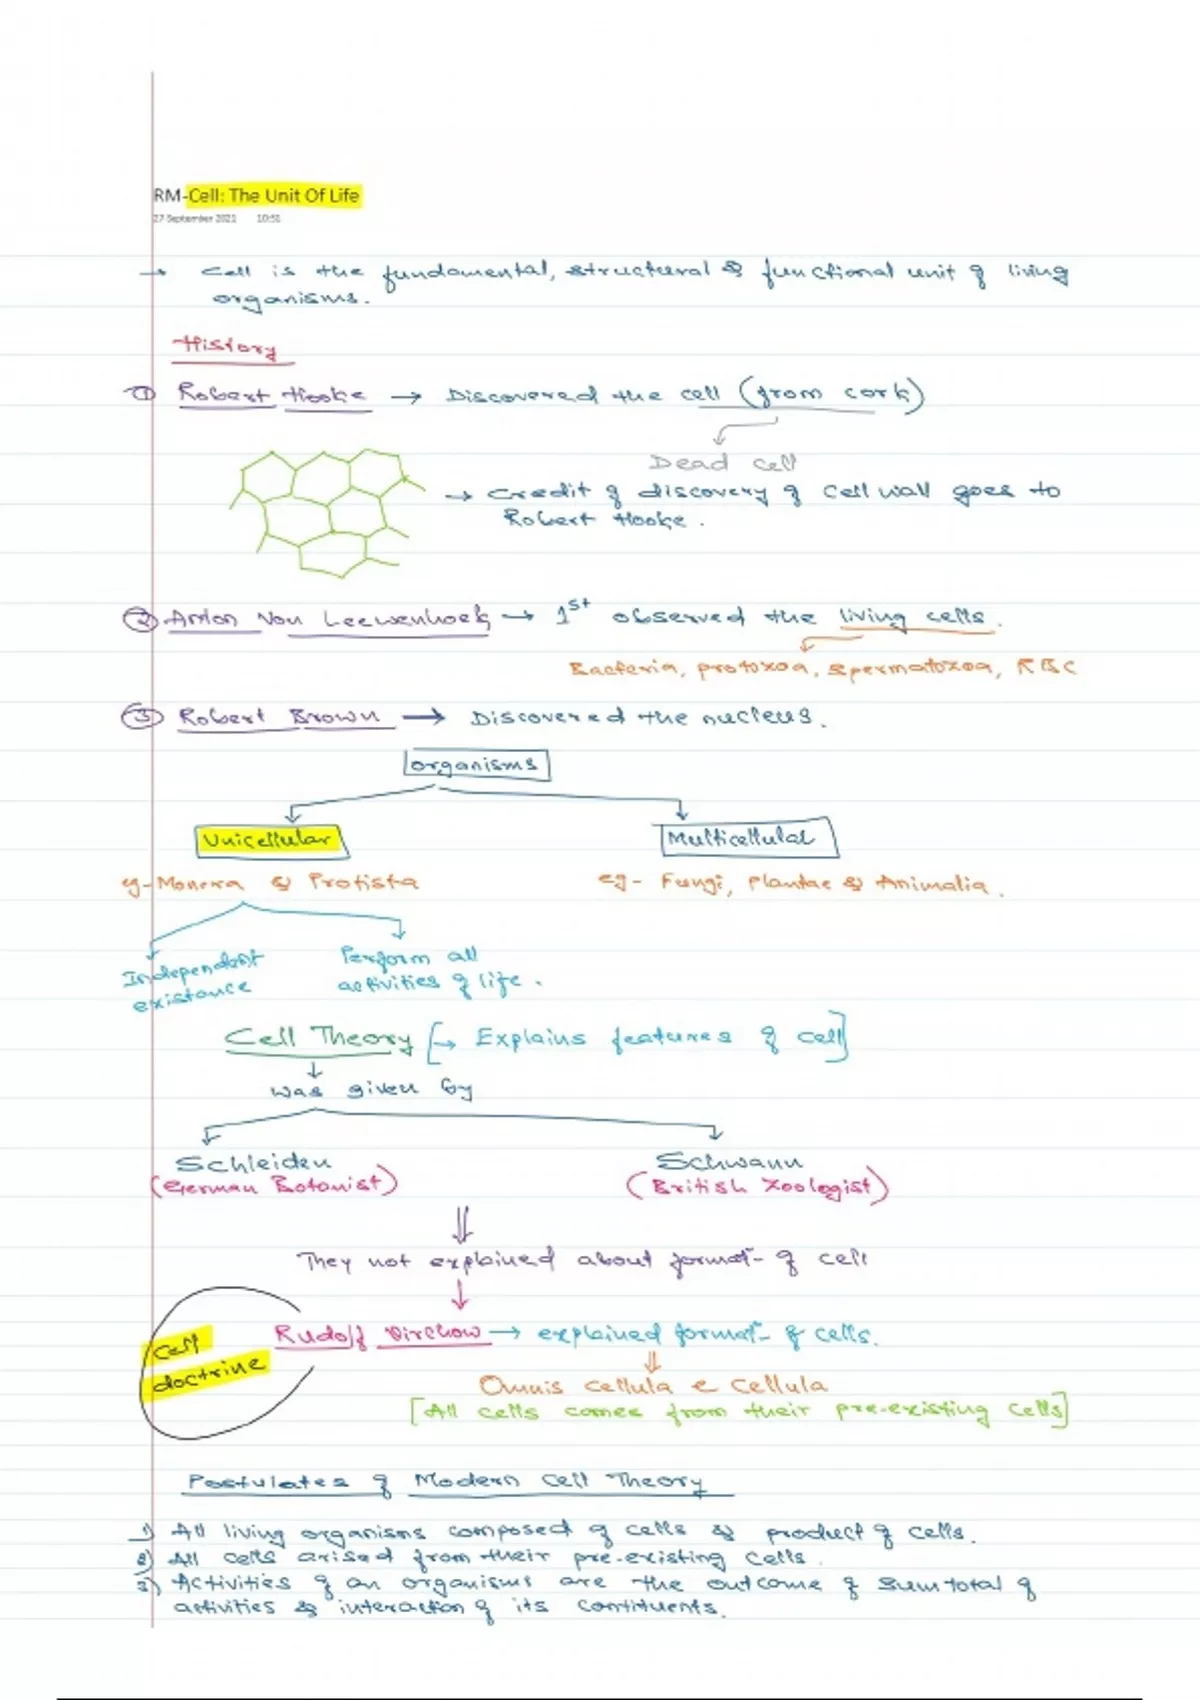 RM-Cell: The Unit Of Life
27 September 2021 10:51
→ Cell is the fundamental, structural & functional unit of living
organisms.
History
① Robert Hooke → Discovered the cell (from cork)
Dead cell
→ Credit of discovery of cell wall goes to
Robert Hooke.
② Anton Von Leewenhoek → 1st observed the living cells.
Bacteria, protozoa, spermatozoa, RBC
③ Robert Brown → Discovered the nucleus.
organisms
Unicellular Multicellular
eg- Monera & Protista eg- Fungi, Plantae & Animalia.
Independent existance
Perform all activities of life.
Cell Theory [→ Explains features of cell]
was given by
Schleiden Schwann
(German Botanist) (British Zoologist)
They not explained about format- of cell
Rudolf Virchow → explained format- of cells.
Cell
doctrine
Omnis cellula e cellula
[All cells comes from their pre-existing cells]
Postulates of Modern Cell Theory
1) All living organisms composed of cells & product of cells.
2) All cells arised from their pre-existing cells.
3) Activities of an organisms are the outcome of sumtotal of
activities & interaction of its contituents.